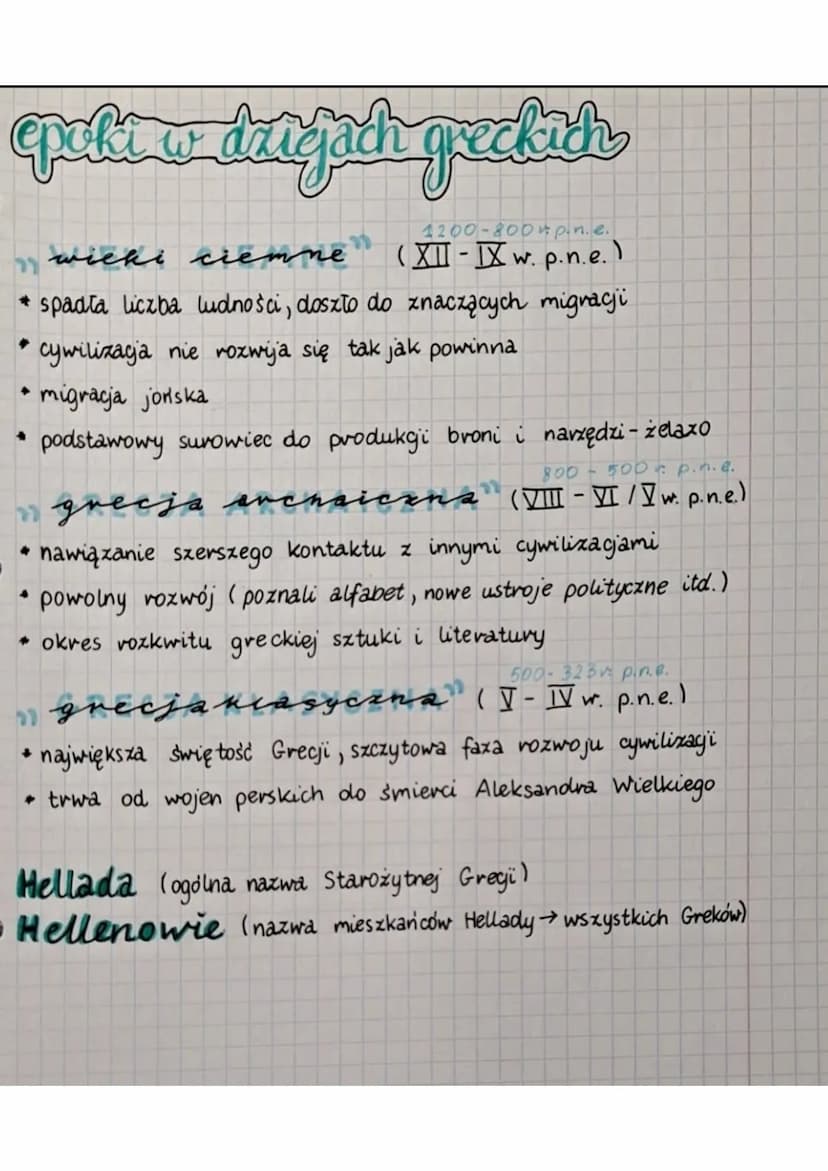 epoki w dziejach greckich
1200-800 r. p.n.e.
"wieki ciemne" (XII - IX w. p.n.e.)
* spadła liczba ludności, doszło do znaczących migracji
* cywilizacja nie rozwija się tak jak powinna
* migracja jońska
* podstawowy surowiec do produkcji broni i narzędzi - żelazo
800 - 500 r. p.n.e.
"grecja archaiczna" (VIII - VI / V w. p.n.e.)
* nawiązanie szerszego kontaktu z innymi cywilizacjami
* powolny rozwój (poznali alfabet, nowe ustroje polityczne itd.)
* okres rozkwitu greckiej sztuki i literatury
500 - 323 r. p.n.e.
"grecja klasyczna" (V - IV w. p.n.e.)
* największa świętość Grecji, szczytowa faza rozwoju cywilizacji
* trwa od wojen perskich do śmierci Aleksandra Wielkiego
Hellada (ogólna nazwa Starożytnej Grecji)
Hellenowie (nazwa mieszkańców Hellady → wszystkich Greków)